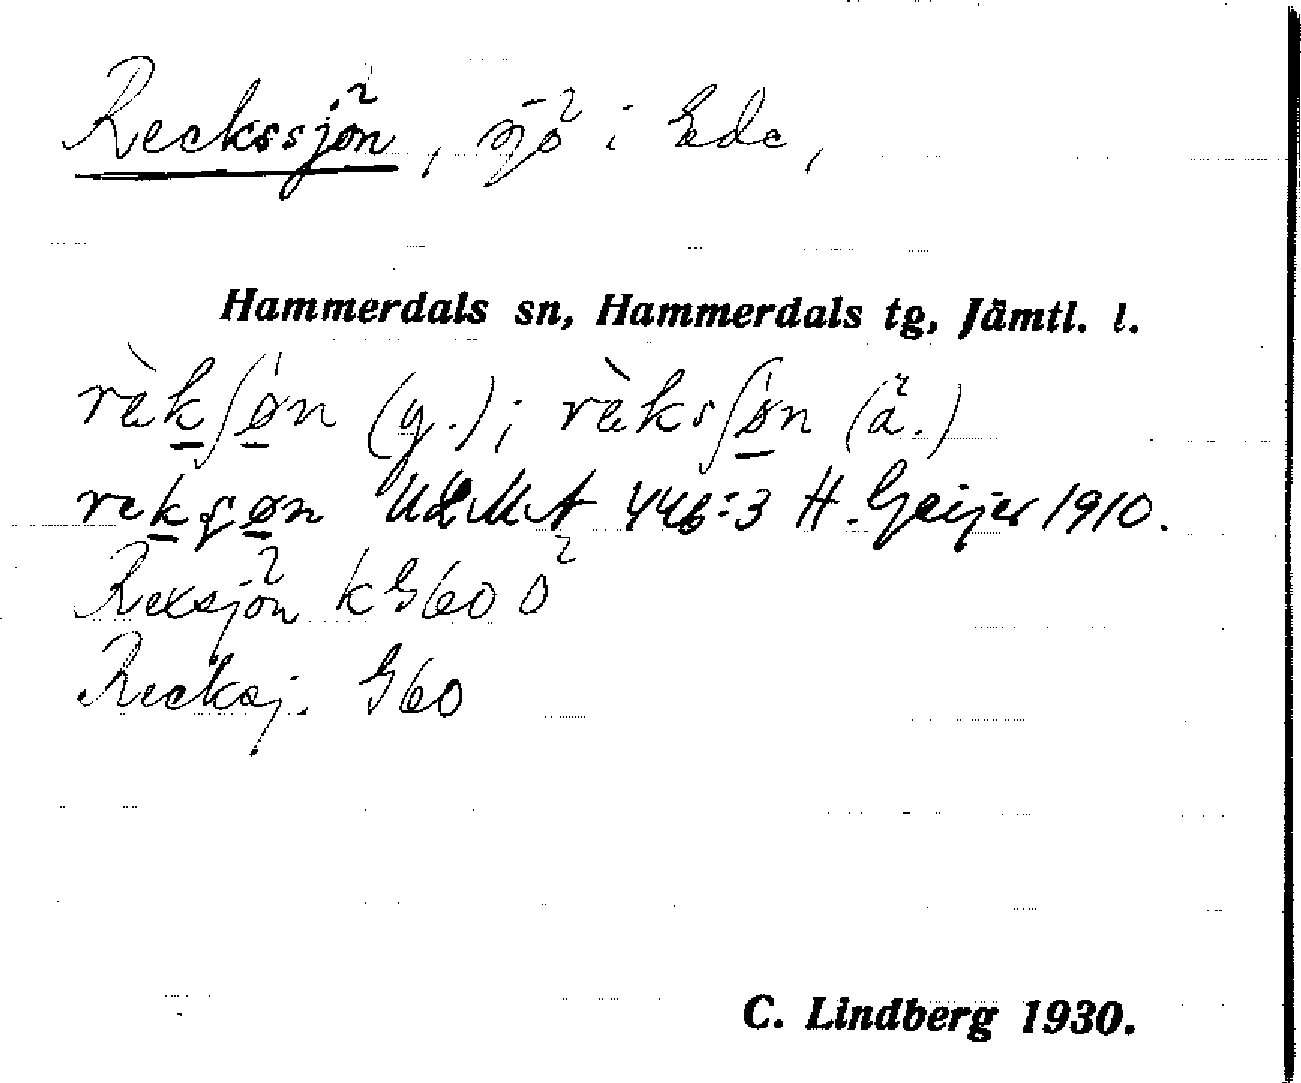 Reckssjön, sjö i Ede,
Hammerdals sn, Hammerdals tg, Jämtl. l.
rèkʃøn (y.); rèksʃøn (ä.)
reksøn ULMA 446:3 H. Geijer 1910.
Rexsjön k G60 Ö
Recksj. G60
C. Lindberg 1930.